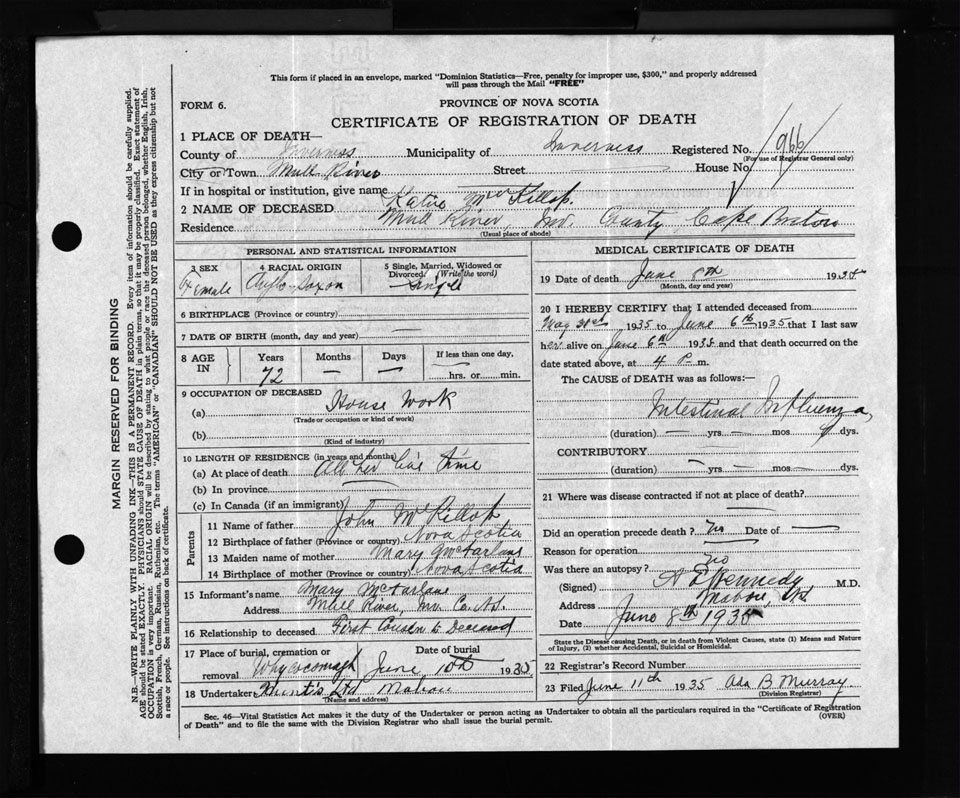 This form if placed in an envelope, marked "Dominion Statistics—Free, penalty for improper use, $300," and properly addressed
will pass through the Mail "FREE"
FORM 6.
PROVINCE OF NOVA SCOTIA
CERTIFICATE OF REGISTRATION OF DEATH
1 PLACE OF DEATH—
County of Inverness Municipality of Inverness Registered No. 966
(For use of Registrar General only)
City or Town Mull River Street House No.
If in hospital or institution, give name
2 NAME OF DECEASED Katie McKillop
Residence Mull River, Inv. County Cape Breton
(Usual place of abode)
PERSONAL AND STATISTICAL INFORMATION
3 SEX 4 RACIAL ORIGIN 5 Single, Married, Widowed or Divorced (Write the word)
Female Anglo-Saxon Single
6 BIRTHPLACE (Province or country)
7 DATE OF BIRTH (month, day and year) —
8 AGE IN Years Months Days If less than one day,
72 — — hrs. or min.
9 OCCUPATION OF DECEASED
(a) House Work
(Trade or occupation or kind of work)
(b)
(Kind of industry)
10 LENGTH OF RESIDENCE (in years and months)
(a) At place of death All her life time
(b) In province
(c) In Canada (if an immigrant)
Parents
11 Name of father John McKillop
12 Birthplace of father (Province or country) Nova Scotia
13 Maiden name of mother Mary McFarlane
14 Birthplace of mother (Province or country) Nova Scotia
15 Informant's name Mary McFarlane
Address Mull River, Inv. Co. N.S.
16 Relationship to deceased First Cousin to Deceased
17 Place of burial, cremation or removal Date of burial
Whycocomagh June 10th 1935
18 Undertaker Hunt's Ltd Mabou
(Name and address)
MEDICAL CERTIFICATE OF DEATH
19 Date of death June 8th 1935
(Month, day and year)
20 I HEREBY CERTIFY that I attended deceased from
May 31st 1935 to June 6th 1935 that I last saw
her alive on June 6th 1935 and that death occurred on the
date stated above, at 4 P. m.
The CAUSE of DEATH was as follows:—
Intestinal Influenza,
(duration) — yrs. — mos. 9 dys.
CONTRIBUTORY
(duration) — yrs. — mos. — dys.
21 Where was disease contracted if not at place of death?
Did an operation precede death? No Date of —
Reason for operation
Was there an autopsy? no
(Signed) Kennedy, M.D.
Address Mabou, N.S.
Date June 8th 1935
State the Disease causing Death, or in death from Violent Causes, state (1) Means and Nature
of Injury, (2) whether Accidental, Suicidal or Homicidal.
22 Registrar's Record Number
23 Filed June 11th 1935 Ada B. Murray
(Division Registrar)
Sec. 46—Vital Statistics Act makes it the duty of the Undertaker or person acting as Undertaker to obtain all the particulars required in the "Certificate of Registration
of Death" and to file the same with the Division Registrar who shall issue the burial permit. (OVER)
MARGIN RESERVED FOR BINDING
N.B.—WRITE PLAINLY WITH UNFADING INK—THIS IS A PERMANENT RECORD. Every item of information should be carefully supplied.
AGE should be stated EXACTLY. PHYSICIANS should STATE CAUSE OF DEATH in plain terms, so that it may be properly classified. Exact statement of
OCCUPATION is very important. RACIAL ORIGIN will be described by stating to what people or race the deceased person belonged, whether English, Irish,
Scottish, French, German, Russian, Ruthenian, etc. The terms "AMERICAN" or "CANADIAN" SHOULD NOT BE USED as they express citizenship but not
a race or people. See instructions on back of certificate.